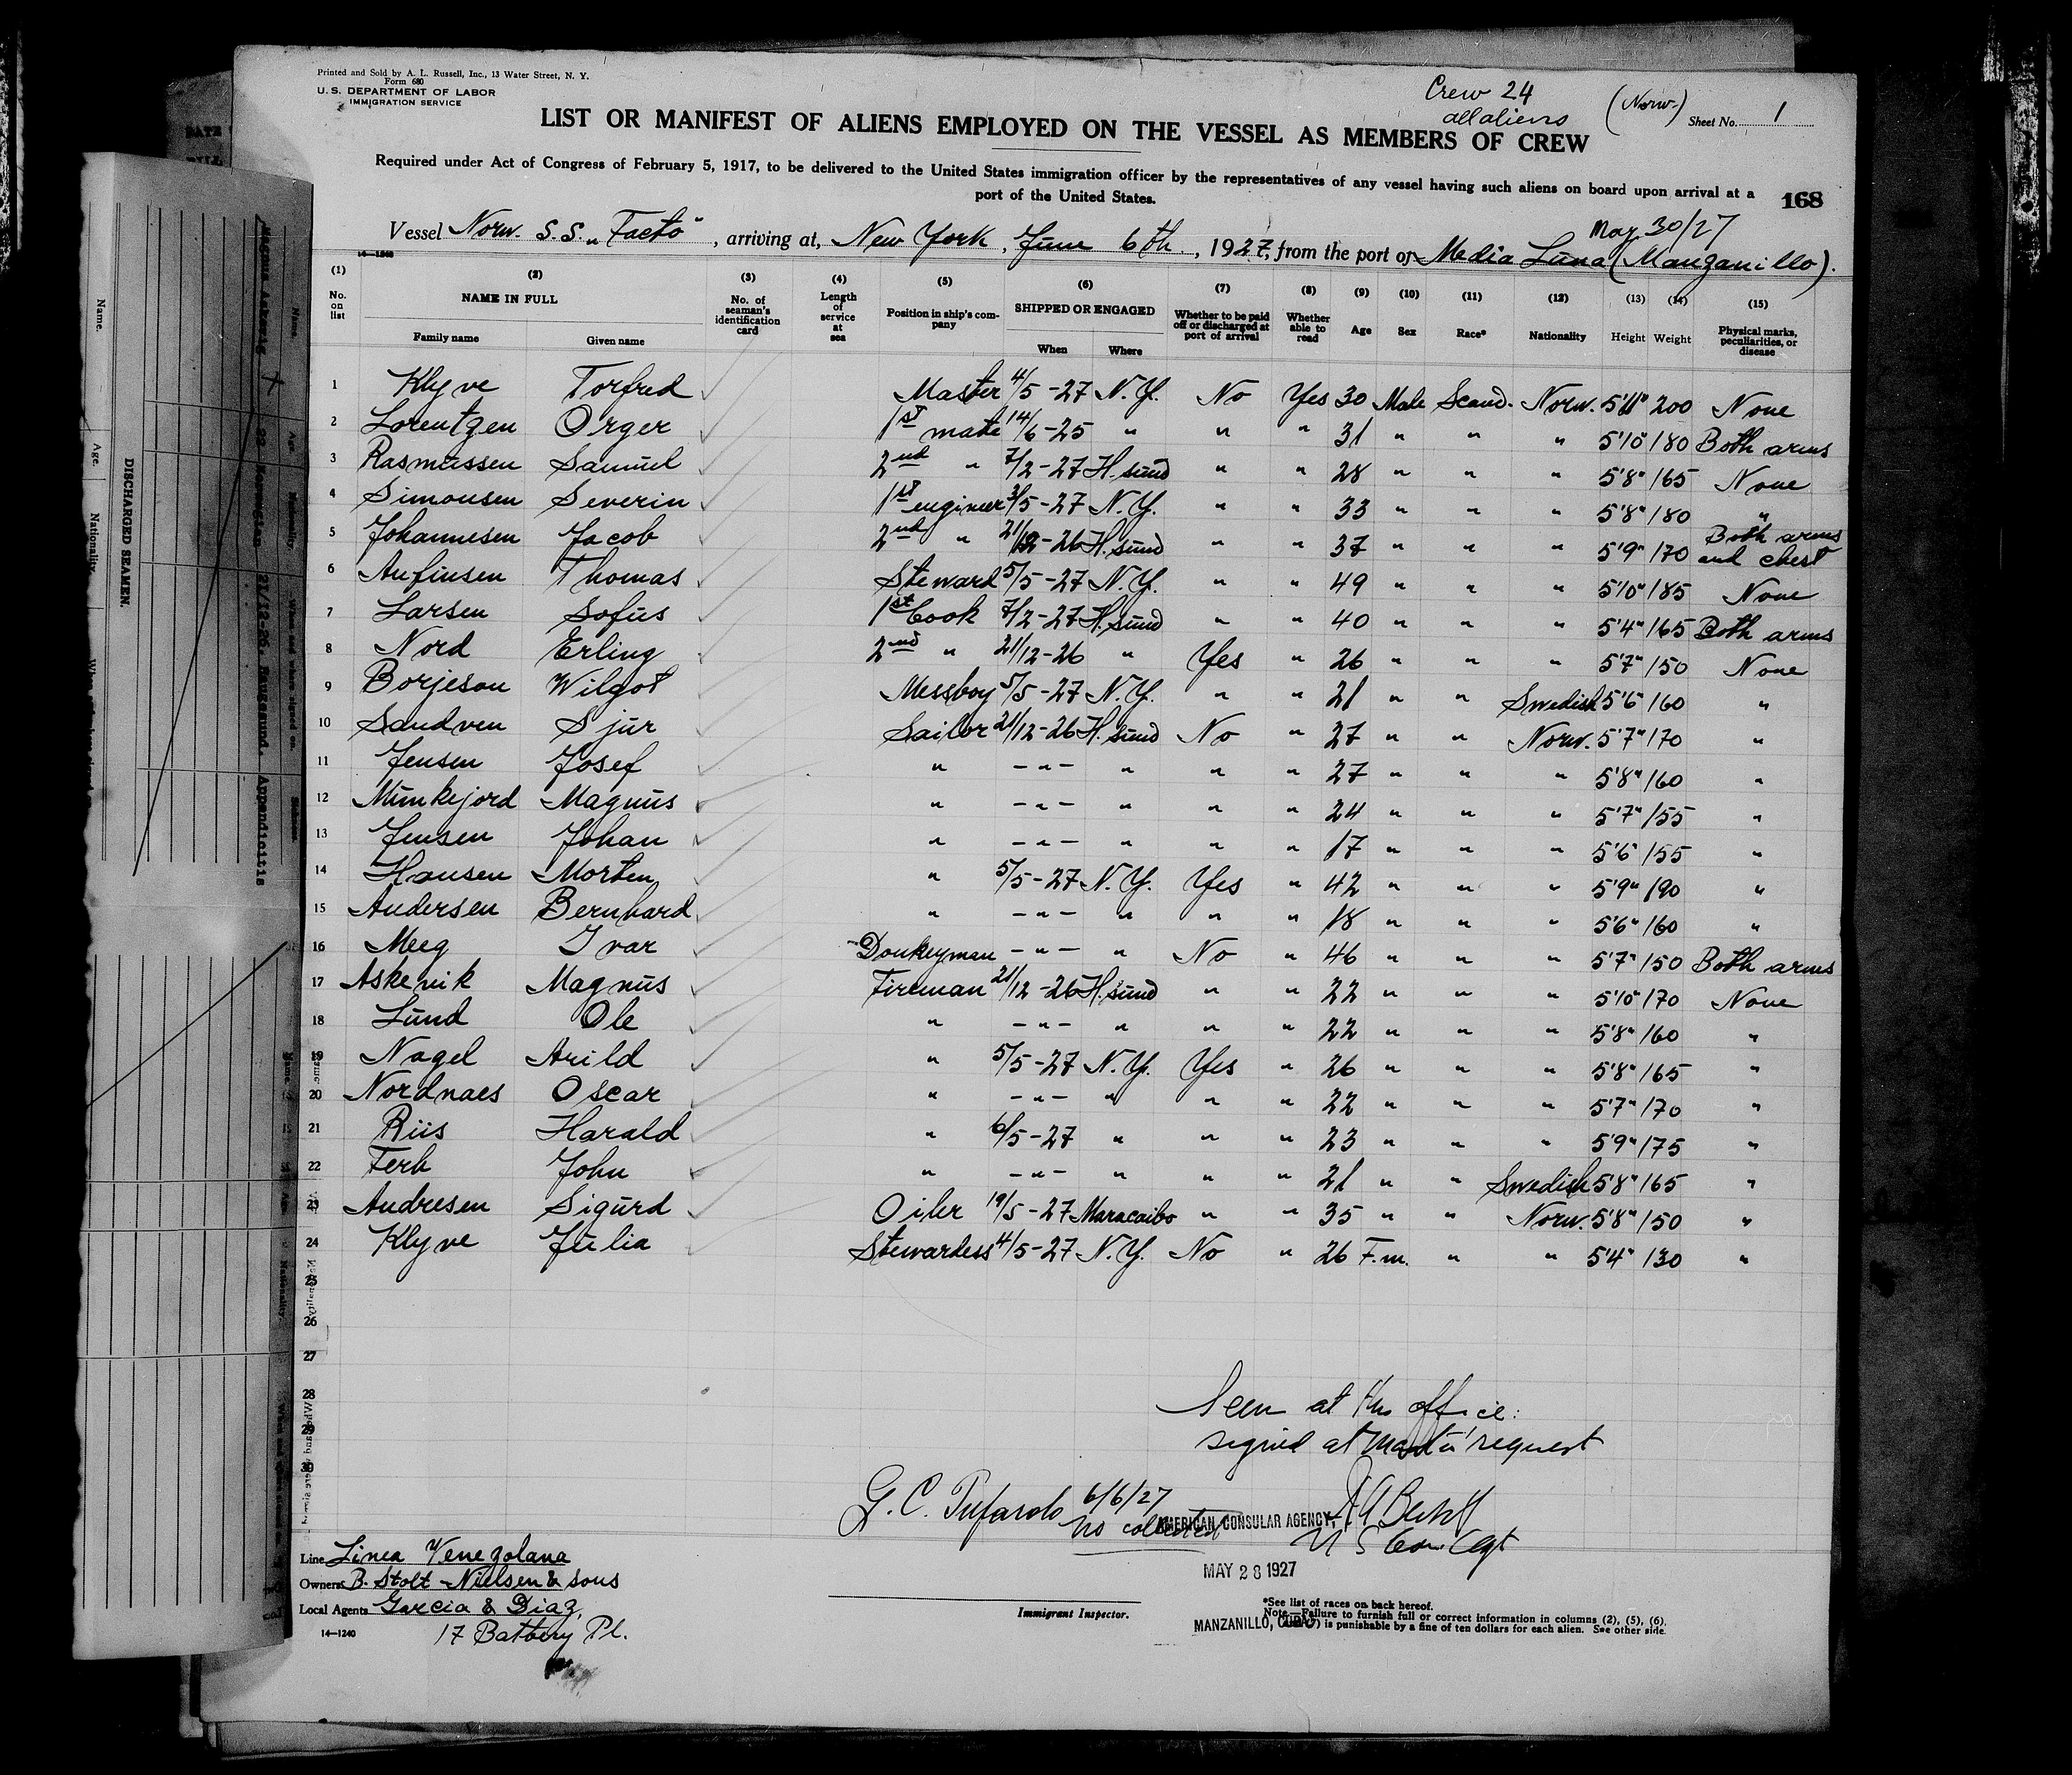 Printed and Sold by A. L. Russell, Inc., 13 Water Street, N. Y.
Form 680
U. S. DEPARTMENT OF LABOR
IMMIGRATION SERVICE
Crew 24
all aliens
(Norw.)
Sheet No. 1
LIST OR MANIFEST OF ALIENS EMPLOYED ON THE VESSEL AS MEMBERS OF CREW
Required under Act of Congress of February 5, 1917, to be delivered to the United States immigration officer by the representatives of any vessel having such aliens on board upon arrival at a
port of the United States.
168
May 30/27
Vessel Norw. S.S. „Facto", arriving at, New York, June 6th, 1927, from the port of Media Luna (Manzanillo).
14—1240
(1) (2) (3) (4) (5) (6) (7) (8) (9) (10) (11) (12) (13) (14) (15)
No. on list NAME IN FULL No. of seaman's identification card Length of service at sea Position in ship's company SHIPPED OR ENGAGED Whether to be paid off or discharged at port of arrival Whether able to read Age Sex Race* Nationality Height Weight Physical marks, peculiarities, or disease
Family name Given name When Where
1 Klyve Torfred Master 4/5-27 N.Y. No Yes 30 Male Scand. Norw. 5'11" 200 None
2 Lorentzen Orger 1st mate 14/6-25 " " " 31 " " " 5'10" 180 Both arms
3 Rasmussen Samuel 2nd " 7/2-27 H.sund " " 28 " " " 5'8" 165 None
4 Simonsen Severin 1st engineer 3/5-27 N.Y. " " 33 " " " 5'8" 180 "
5 Johannesen Jacob 2nd " 21/12-26 H.sund " " 37 " " " 5'9" 170 Both arms and chest
6 Anfinsen Thomas Steward 5/5-27 N.Y. " " 49 " " " 5'10" 185 None
7 Larsen Sofus 1st Cook 7/2-27 H.sund " " 40 " " " 5'4" 165 Both arms
8 Nord Erling 2nd " 21/12-26 " Yes " 26 " " " 5'7" 150 None
9 Borjeson Wilgot Messboy 5/5-27 N.Y. " " 21 " " Swedish 5'6" 160 "
10 Sandven Sjur Sailor 21/12-26 H.sund No " 27 " " Norw. 5'7" 170 "
11 Jensen Josef " -"- " " " 27 " " " 5'8" 160 "
12 Munkejord Magnus " -"- " " " 24 " " " 5'7" 155 "
13 Jensen Johan " -"- " " " 17 " " " 5'6" 155 "
14 Hansen Morten " 5/5-27 N.Y. Yes " 42 " " " 5'9" 190 "
15 Andersen Bernhard " -"- " " " 18 " " " 5'6" 160 "
16 Meeg Ivar Donkeyman -"- " No " 46 " " " 5'7" 150 Both arms
17 Askevik Magnus Fireman 21/12-26 H.sund " " 22 " " " 5'10" 170 None
18 Lund Ole " -"- " " " 22 " " " 5'8" 160 "
19 Nagel Arild " 5/5-27 N.Y. Yes " 26 " " " 5'8" 165 "
20 Nordnaes Oscar " -"- " " " 22 " " " 5'7" 170 "
21 Riis Harald " 6/5-27 " " " 23 " " " 5'9" 175 "
22 Ferb John " -"- " " " 21 " " Swedish 5'8" 165 "
23 Andresen Sigurd Oiler 19/5-27 Maracaibo " " 35 " " Norw. 5'8" 150 "
24 Klyve Julia Stewardess 4/5-27 N.Y. No " 26 F.m. " " 5'4" 130 "
25
26
27
28
29
30
Seen at this office:
signed at Master's request
G. C. Tufarolo 6/6/27
no collected
AMERICAN CONSULAR AGENCY,
U S Con. Agt
MAY 28 1927
MANZANILLO, CUBA
Line Linea Venezolana
Owners B. Stolt-Nielsen & sons
Local Agents Garcia & Diaz,
17 Battery Pl.
14—1240
Immigrant Inspector.
*See list of races on back hereof.
Note—Failure to furnish full or correct information in columns (2), (5), (6), and (7) is punishable by a fine of ten dollars for each alien. See other side.
DISCHARGED SEAMEN.
Name. Age. Nationality.
Name. Age. Nationality. When and where signed on.
Magnus Askevig 22 Norwegian 21/12-26 Haugesund Appendicitis